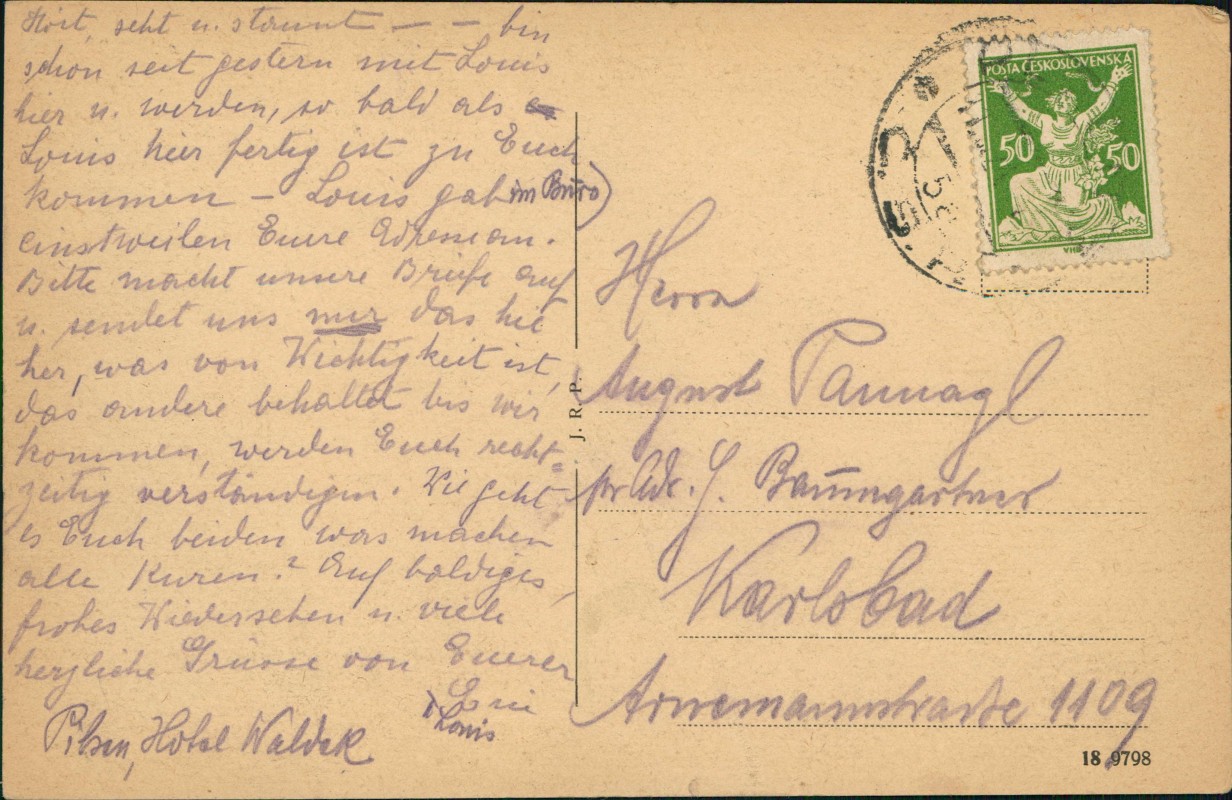 Hört, seht u. staunt — — bin
schon seit gestern mit Louis
hier u. werden, so bald als
Louis hier fertig ist zu Euch
kommen – Louis gab im Büro)
einstweilen Euere Adresse an.
Bitte macht unsere Briefe auf
u. sendet uns nur das hie
her, was von Wichtigkeit ist,
das andere behaltet bis wir
kommen, werden Euch recht=
zeitig verständigen. Wie geht
es Euch beiden was machen
alle Kuren? Auf baldiges,
frohes Wiedersehen u. viele
herzliche Grüsse von Euerer
Louis
Pilsen, Hotel Waldek
J. R. P.
POSTA ČESKOSLOVENSKÁ
50 50
Herrn
August Pannagl
pr Adr. J. Baumgartner
Karlsbad
Arnemannstraße 1109
18 9798